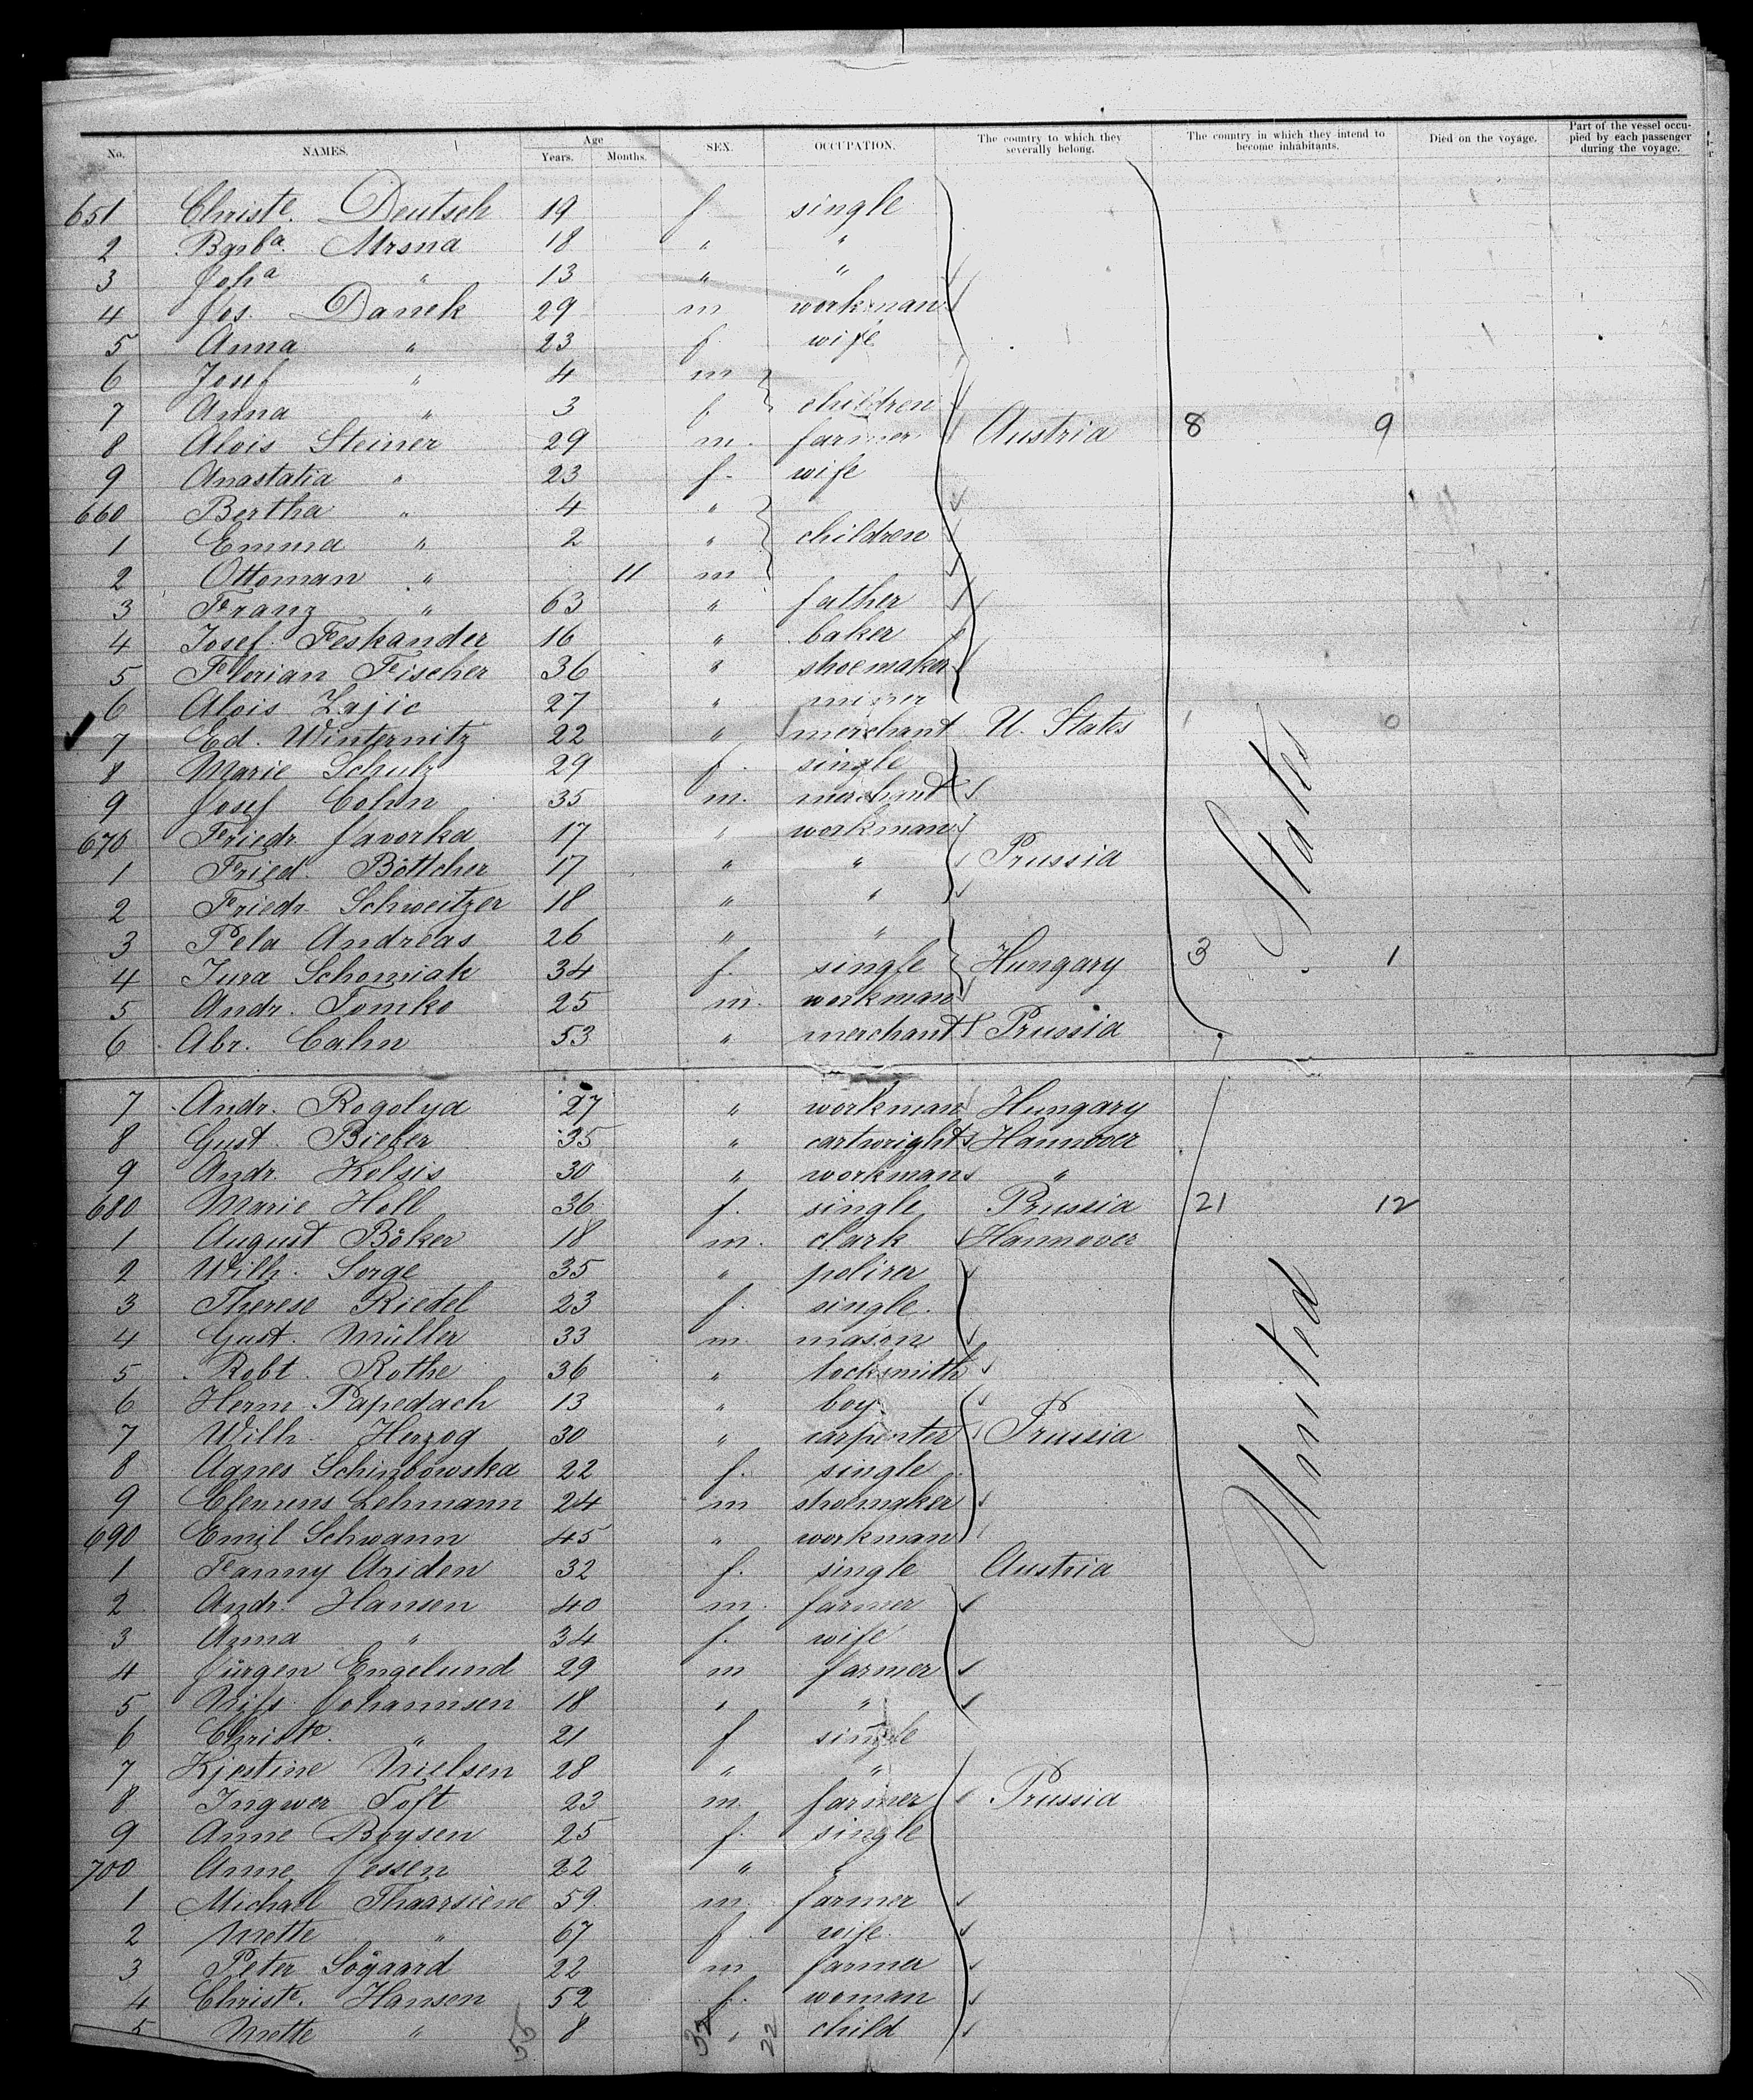 No. NAMES. Age Years. Months. SEX. OCCUPATION. The country to which they severally belong. The country in which they intend to become inhabitants. Died on the voyage. Part of the vessel occupied by each passenger during the voyage.
651 Christe. Deutsch 19 f. single
2 Barba. Mrsna 18 " "
3 Joha " 13 " "
4 Jos. Danek 29 m workman
5 Anna " 23 f. wife
6 Josef " 4 m
7 Anna " 3 f. children
8 Alois Steiner 29 m. farmer Austria 8 9
9 Anastatia " 23 f. wife
660 Bertha " 4 "
1 Emma " 2 " children
2 Ottoman " 11 m
3 Franz " 63 " father
4 Josef Feskander 16 " baker
5 Florian Fischer 36 " shoemaker
6 Alois Zajic 27 " miner
7 Ed. Winternitz 22 " merchant U. States 1 0
8 Marie Schulz 29 f. single
9 Josef Cohn 35 m. merchant
670 Friedr. Javorka 17 " workman
1 Fried. Böttcher 17 " " Prussia
2 Friedr. Schweitzer 18 " "
3 Pela Andreas 26 " "
4 Jura Schomiak 34 f. single Hungary 3 1
5 Andr. Tomko 25 m. workman
6 Abr. Cahn 53 " merchant Prussia
7 Andr. Rogolyd 27 " workman Hungary
8 Gust. Bieber 35 " cartwright Hannover
9 Andr. Kolsis 30 " workman "
680 Marie Holl 36 f. single Prussia 21 12
1 August Böker 18 m. clark Hannover
2 Wilh. Sorge 35 " polirer
3 Therese Riedel 23 f. single.
4 Gust. Müller 33 m. mason
5 Robt. Rothe 36 " locksmith
6 Herm. Papedach 13 " boy
7 Wilh. Herzog 30 " carpenter Prussia
8 Agnes Schinbowska 22 f. single
9 Clemens Lehmann 24 m shoemaker
690 Emil Schwann 45 " workman
1 Fanny Ariden 32 f. single Austria
2 Andr. Hansen 40 m. farmer
3 Anna " 34 f. wife
4 Jürgen Engelund 29 m farmer
5 Nils Johannsen 18 " "
6 Christe. " 21 f single
7 Kjestine Nielsen 28 " "
8 Ingwer Toft 23 m. farmer Prussia
9 Anne Boysen 25 f. single
700 Anne Jessen 22 " "
1 Michael Thaarsiene 59 m. farmer
2 Mette " 67 f wife
3 Peter Sögaard 22 m farmer
4 Christe. Hansen 52 f. woman
5 Mette " 8 " child
United States
55 22